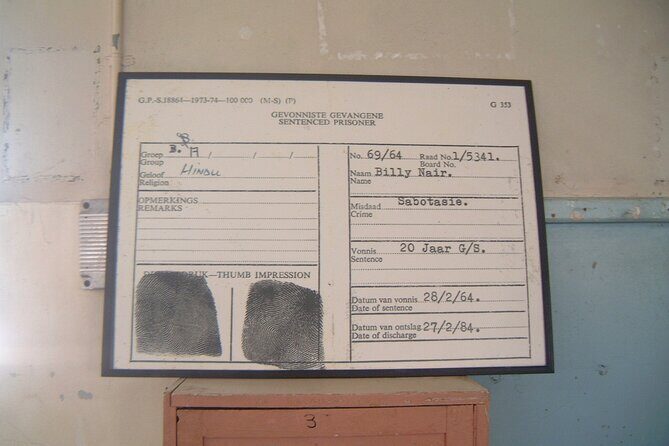 G.P.-S.18864—1973-74—100 000 (M-S) (P)
G 353
GEVONNISTE GEVANGENE
SENTENCED PRISONER
B.
Groep B. A / / /
Group
Geloof HINDU
Religion
OPMERKINGS
REMARKS
DRUK—THUMB IMPRESSION
No. 69/64 Raad No. 1/5341.
Board No.
Naam Billy Nair.
Name
Misdaad Sabotasie.
Crime
Vonnis 20 Jaar G/S.
Sentence
Datum van vonnis 28/2/64.
Date of sentence
Datum van ontslag 27/2/84.
Date of discharge
3